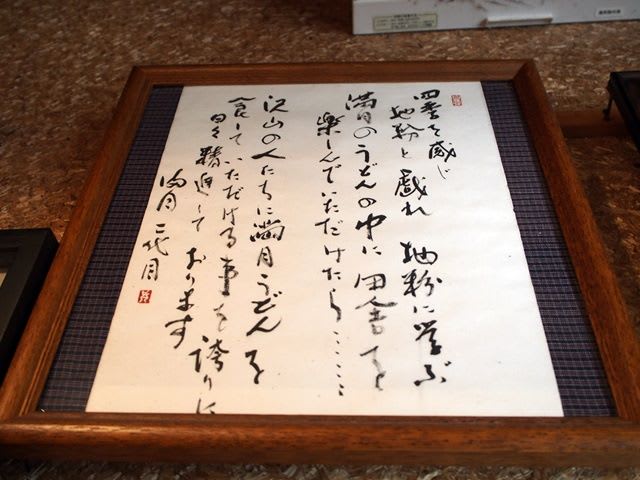 四季を感じ
地粉と戯れ 地粉に学ぶ
満月のうどんの中に田舎を
楽しんでいただけたら……
沢山の人たちに満月うどんを
食していただける事を誇りに
日々精進しております
満月 二代目